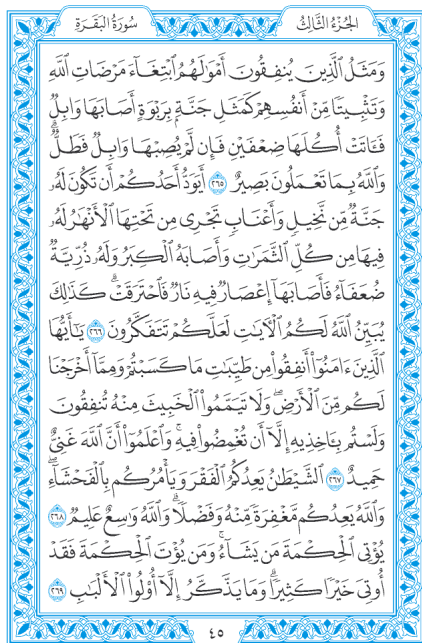 الجُزْءُ الثَّالِثُ
سُورَةُ البَقَرَةِ
وَمَثَلُ ٱلَّذِينَ يُنفِقُونَ أَمْوَٰلَهُمُ ٱبْتِغَآءَ مَرْضَاتِ ٱللَّهِ
وَتَثْبِيتًا مِّنْ أَنفُسِهِمْ كَمَثَلِ جَنَّةٍۭ بِرَبْوَةٍ أَصَابَهَا وَابِلٌ
فَـَٔاتَتْ أُكُلَهَا ضِعْفَيْنِ فَإِن لَّمْ يُصِبْهَا وَابِلٌ فَطَلٌّ ۗ
وَٱللَّهُ بِمَا تَعْمَلُونَ بَصِيرٌ ٢٦٥ أَيَوَدُّ أَحَدُكُمْ أَن تَكُونَ لَهُۥ
جَنَّةٌ مِّن نَّخِيلٍ وَأَعْنَابٍ تَجْرِى مِن تَحْتِهَا ٱلْأَنْهَٰرُ لَهُۥ
فِيهَا مِن كُلِّ ٱلثَّمَرَٰتِ وَأَصَابَهُ ٱلْكِبَرُ وَلَهُۥ ذُرِّيَّةٌ
ضُعَفَآءُ فَأَصَابَهَآ إِعْصَارٌ فِيهِ نَارٌ فَٱحْتَرَقَتْ ۗ كَذَٰلِكَ
يُبَيِّنُ ٱللَّهُ لَكُمُ ٱلْـَٔايَٰتِ لَعَلَّكُمْ تَتَفَكَّرُونَ ٢٦٦ يَٰٓأَيُّهَا
ٱلَّذِينَ ءَامَنُوٓا۟ أَنفِقُوا۟ مِن طَيِّبَٰتِ مَا كَسَبْتُمْ وَمِمَّآ أَخْرَجْنَا
لَكُم مِّنَ ٱلْأَرْضِ ۖ وَلَا تَيَمَّمُوا۟ ٱلْخَبِيثَ مِنْهُ تُنفِقُونَ
وَلَسْتُم بِـَٔاخِذِيهِ إِلَّآ أَن تُغْمِضُوا۟ فِيهِ ۚ وَٱعْلَمُوٓا۟ أَنَّ ٱللَّهَ غَنِىٌّ
حَمِيدٌ ٢٦٧ ٱلشَّيْطَٰنُ يَعِدُكُمُ ٱلْفَقْرَ وَيَأْمُرُكُم بِٱلْفَحْشَآءِ ۖ
وَٱللَّهُ يَعِدُكُم مَّغْفِرَةً مِّنْهُ وَفَضْلًا ۗ وَٱللَّهُ وَٰسِعٌ عَلِيمٌ ٢٦٨
يُؤْتِى ٱلْحِكْمَةَ مَن يَشَآءُ ۚ وَمَن يُؤْتَ ٱلْحِكْمَةَ فَقَدْ
أُوتِىَ خَيْرًا كَثِيرًا ۗ وَمَا يَذَّكَّرُ إِلَّآ أُو۟لُوا۟ ٱلْأَلْبَٰبِ ٢٦٩
٤٥